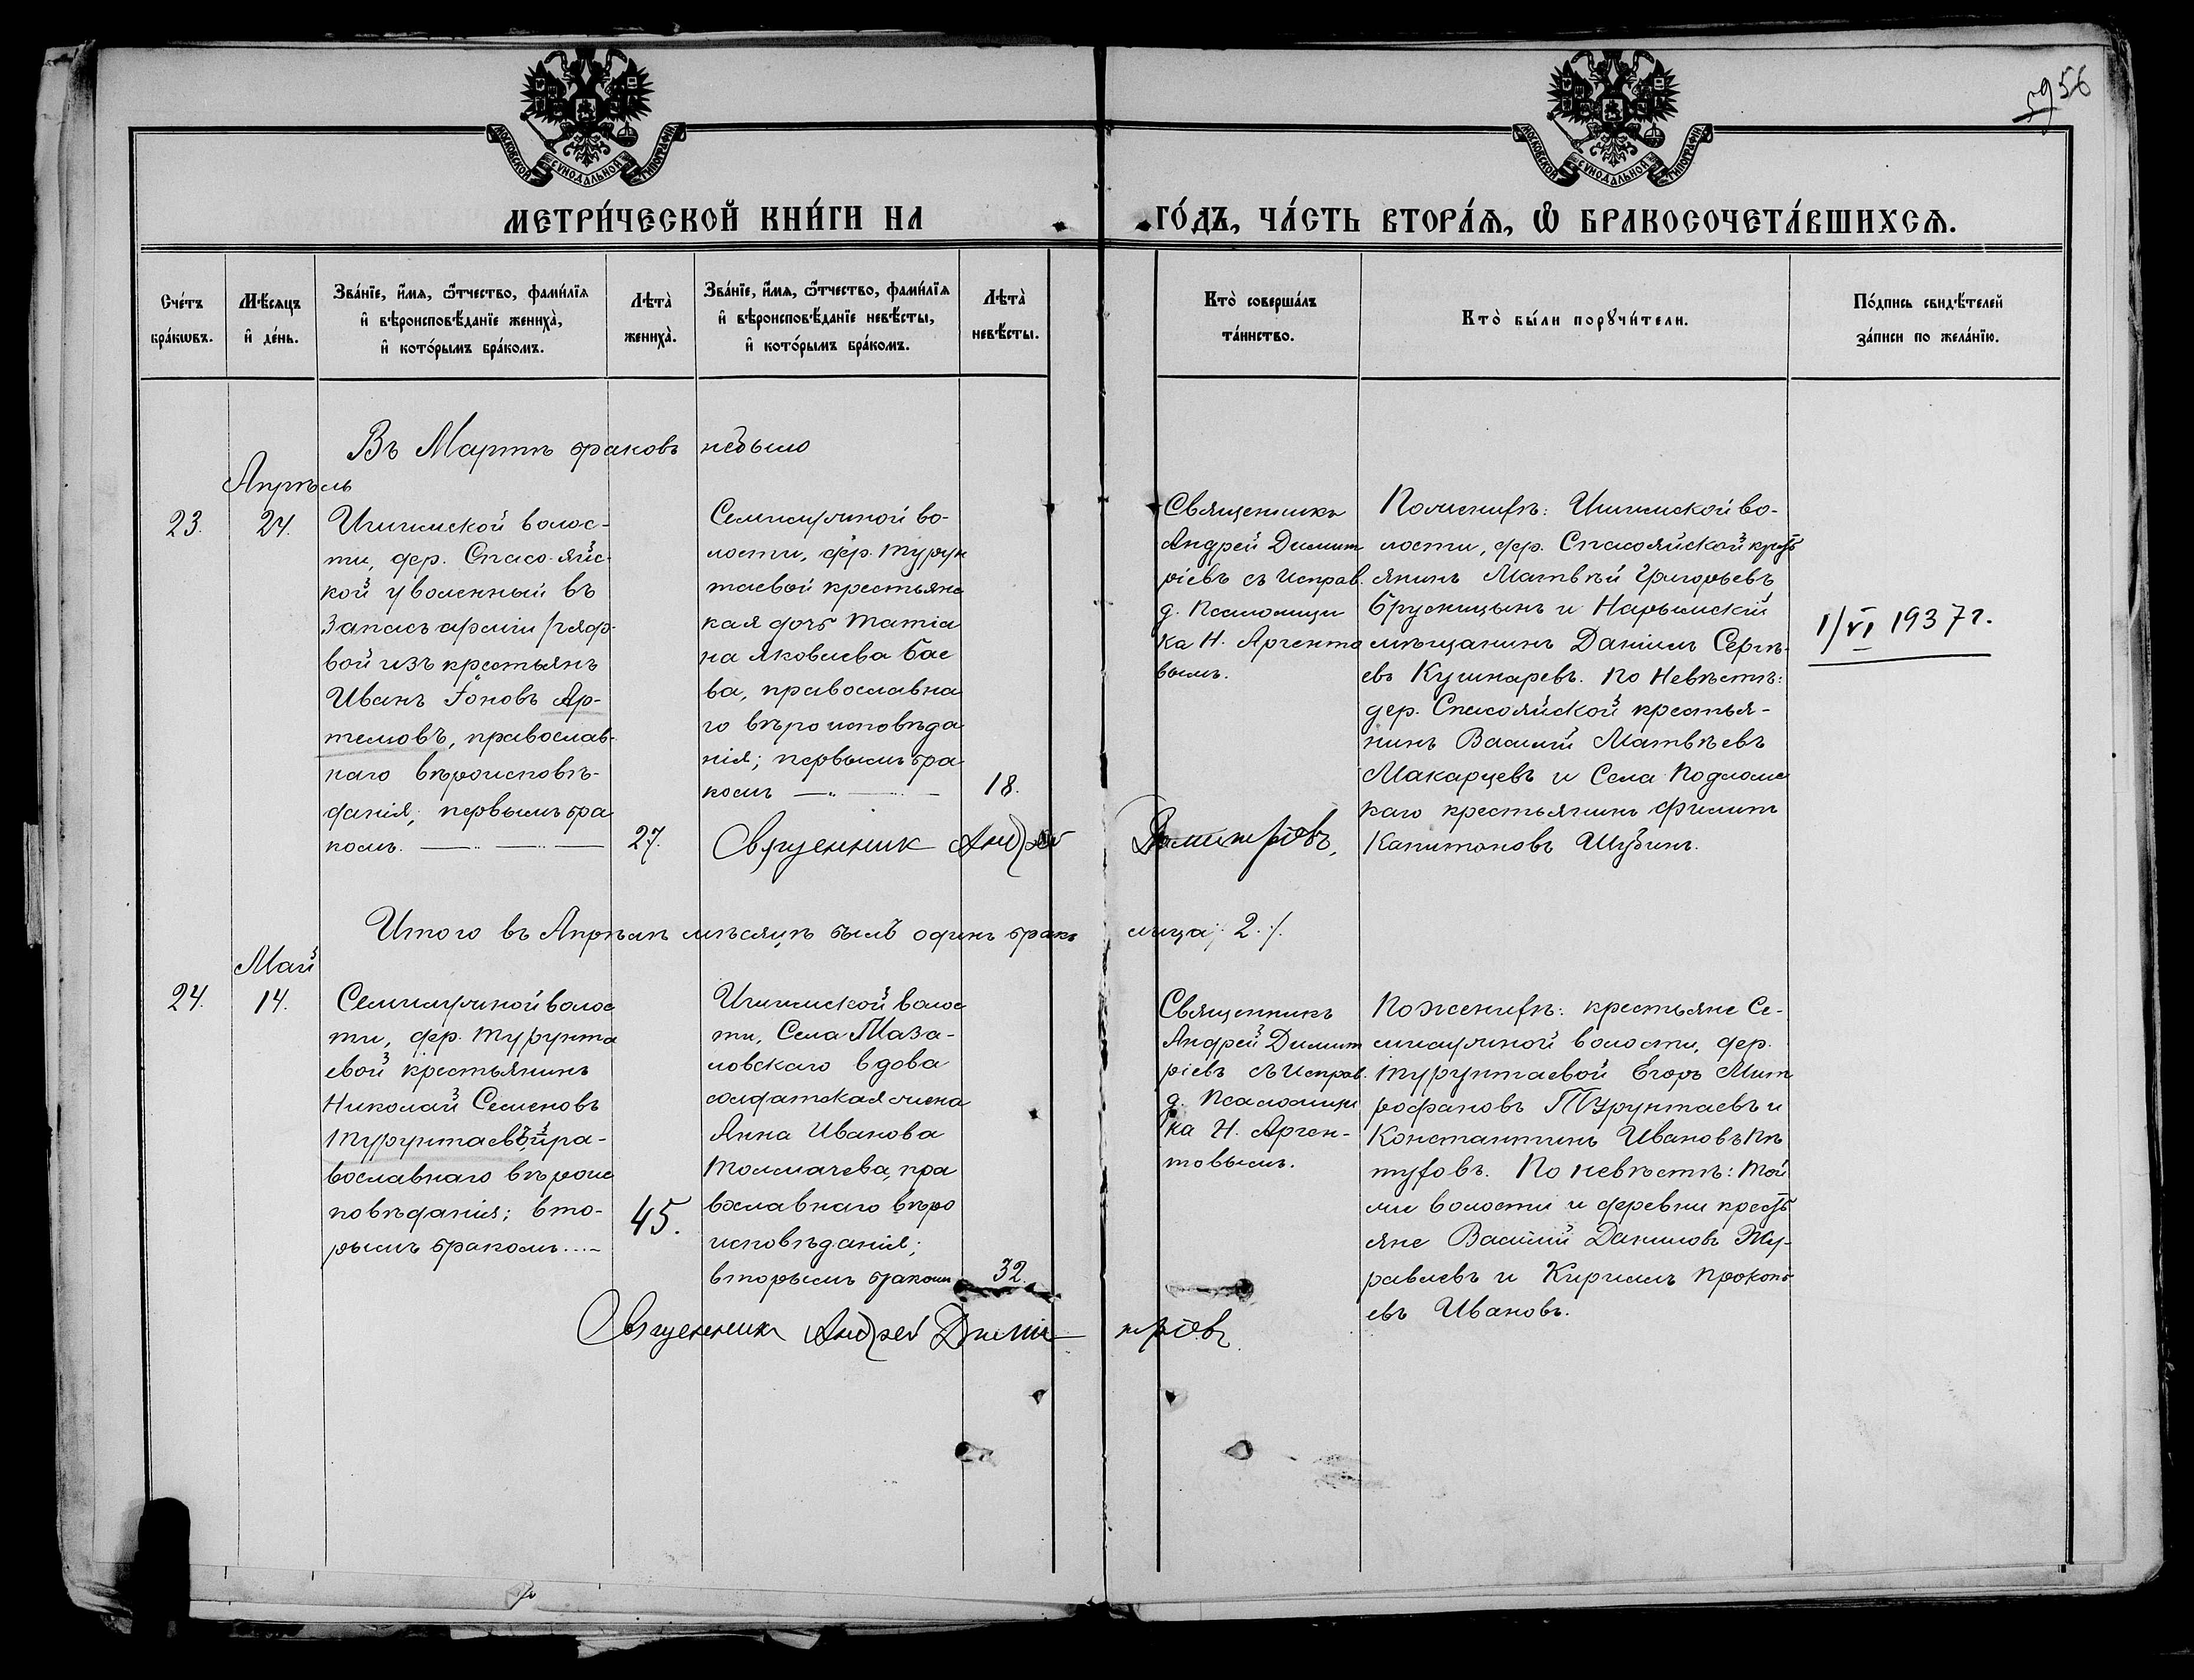 59 56
МОСКОВСКОЙ СѴНОДАЛЬНОЙ ТИПОГРАФІИ
МОСКОВСКОЙ СѴНОДАЛЬНОЙ ТИПОГРАФІИ
МЕТРИ́ЧЕСКОЙ КНИ́ГИ НА
ГО́ДЪ, ЧА́СТЬ ВТОРА́Ѧ, Ѽ БРАКОСОЧЕТА́ВШИХСѦ.
Сче́тъ
бра́кѡвъ.
Мѣ́сяцъ
и҆ де́нь.
Зва́нїе, и҆́мѧ, ѻ҆́тчество, фами́лїѧ
и҆ вѣроисповѣ́данїе жениха̀,
и҆ кото́рымъ бра́комъ.
Лѣта̀
жениха̀.
Зва́нїе, и҆́мѧ, ѻ҆́тчество, фами́лїѧ
и҆ вѣроисповѣ́данїе невѣ́сты,
и҆ кото́рымъ бра́комъ.
Лѣта̀
невѣ́сты.
Кто̀ соверша́лъ
та́инство.
Кто̀ бы́ли порꙋчи́тели.
По́дпись свидѣ́телей
за́писи по жела́нїю.
Въ Мартѣ браковъ небыло
Апрѣль
23.
24.
Ишимской волос-
ти, дер. Спасо-Яйс-
кой уволенный въ
Запасъ арміи рядо-
вой изъ крестьянъ
Иванъ Іоновъ Ар-
темовъ, православ-
наго вѣроисповѣ-
данія; первымъ бра
комъ.
27.
Семилужной во-
лости, дер. Турун
таевой крестьянс
кая дочь Татіа
на Яковлева Бае
ва, православна
го вѣроисповѣда
нія; первымъ бра
комъ
18.
Священникъ
Андрей Димит
ріевъ съ Исправ.
д. Псаломщи
ка Н. Аргенто
вымъ.
По женихѣ: Ишимской во-
лости, дер. Спасояйской крест
янинъ Матвѣй Григорьевъ
Брусницынъ и Нарымскій
мѣщанинъ Даніилъ Сергѣ-
евъ Кушнаревъ. По Невѣстѣ:
дер. Спасояйской крестья-
нинъ Василій Матвѣевъ
Макарцевъ и Села Подломс
каго крестьянинъ Филиппъ
Капитоновъ Шубинъ.
1/VI 1937г.
Священник Андрей Димитріевъ,
Итого въ Апрѣлѣ мѣсяцѣ былъ одинъ бракъ лица; 2./.
Май
24.
14.
Семилужной волос
ти, дер. Турунта
евой крестьянинъ
Николай Семеновъ
Турунтаевъ, пра-
вославнаго вѣроис
повѣданія; вто-
рымъ бракомъ
45.
Ишимской волос
ти, Села Маза-
ловскаго вдова
солдатская жена
Анна Иванова
Толмачева, пра
вославнаго вѣро
исповѣданія;
вторымъ бракомъ
32.
Священникъ
Андрей Димит
ріевъ съ Исправ.
д. Псаломщи
ка Н. Арген-
товымъ.
По женихѣ: крестьяне Се-
милужной волости, дер.
Турунтаевой Егоръ Мит
рофановъ Турунтаевъ и
Константинъ Ивановъ Пѣ
туховъ. По невѣстѣ: той
же волости и деревни крест
яне Василій Даниловъ Жу-
равлевъ и Кириллъ Прокопь
евъ Ивановъ.
Священник Андрей Димитріевъ